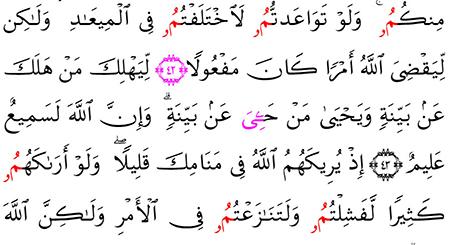 مِنكُمُۥۚ وَلَوْ تَوَاعَدتُّمُۥ لَاخْتَلَفْتُمُۥ فِى الْمِيعَٰدِ وَلَٰكِن
لِّيَقْضِىَ اللَّهُ أَمْرًا كَانَ مَفْعُولًا ﴿٤٢﴾ لِّيَهْلِكَ مَنْ هَلَكَ
عَنۢ بَيِّنَةٍ وَيَحْيَىٰ مَنْ حَىِىَ عَنۢ بَيِّنَةٍۗ وَإِنَّ اللَّهَ لَسَمِيعٌ
عَلِيمٌ ﴿٤٣﴾ إِذْ يُرِيكَهُمُ اللَّهُ فِى مَنَامِكَ قَلِيلًاۖ وَلَوْ أَرَىٰكَهُمُۥ
كَثِيرًا لَّفَشِلْتُمُۥ وَلَتَنَٰزَعْتُمُۥ فِى الْأَمْرِ وَلَٰكِنَّ اللَّهَ